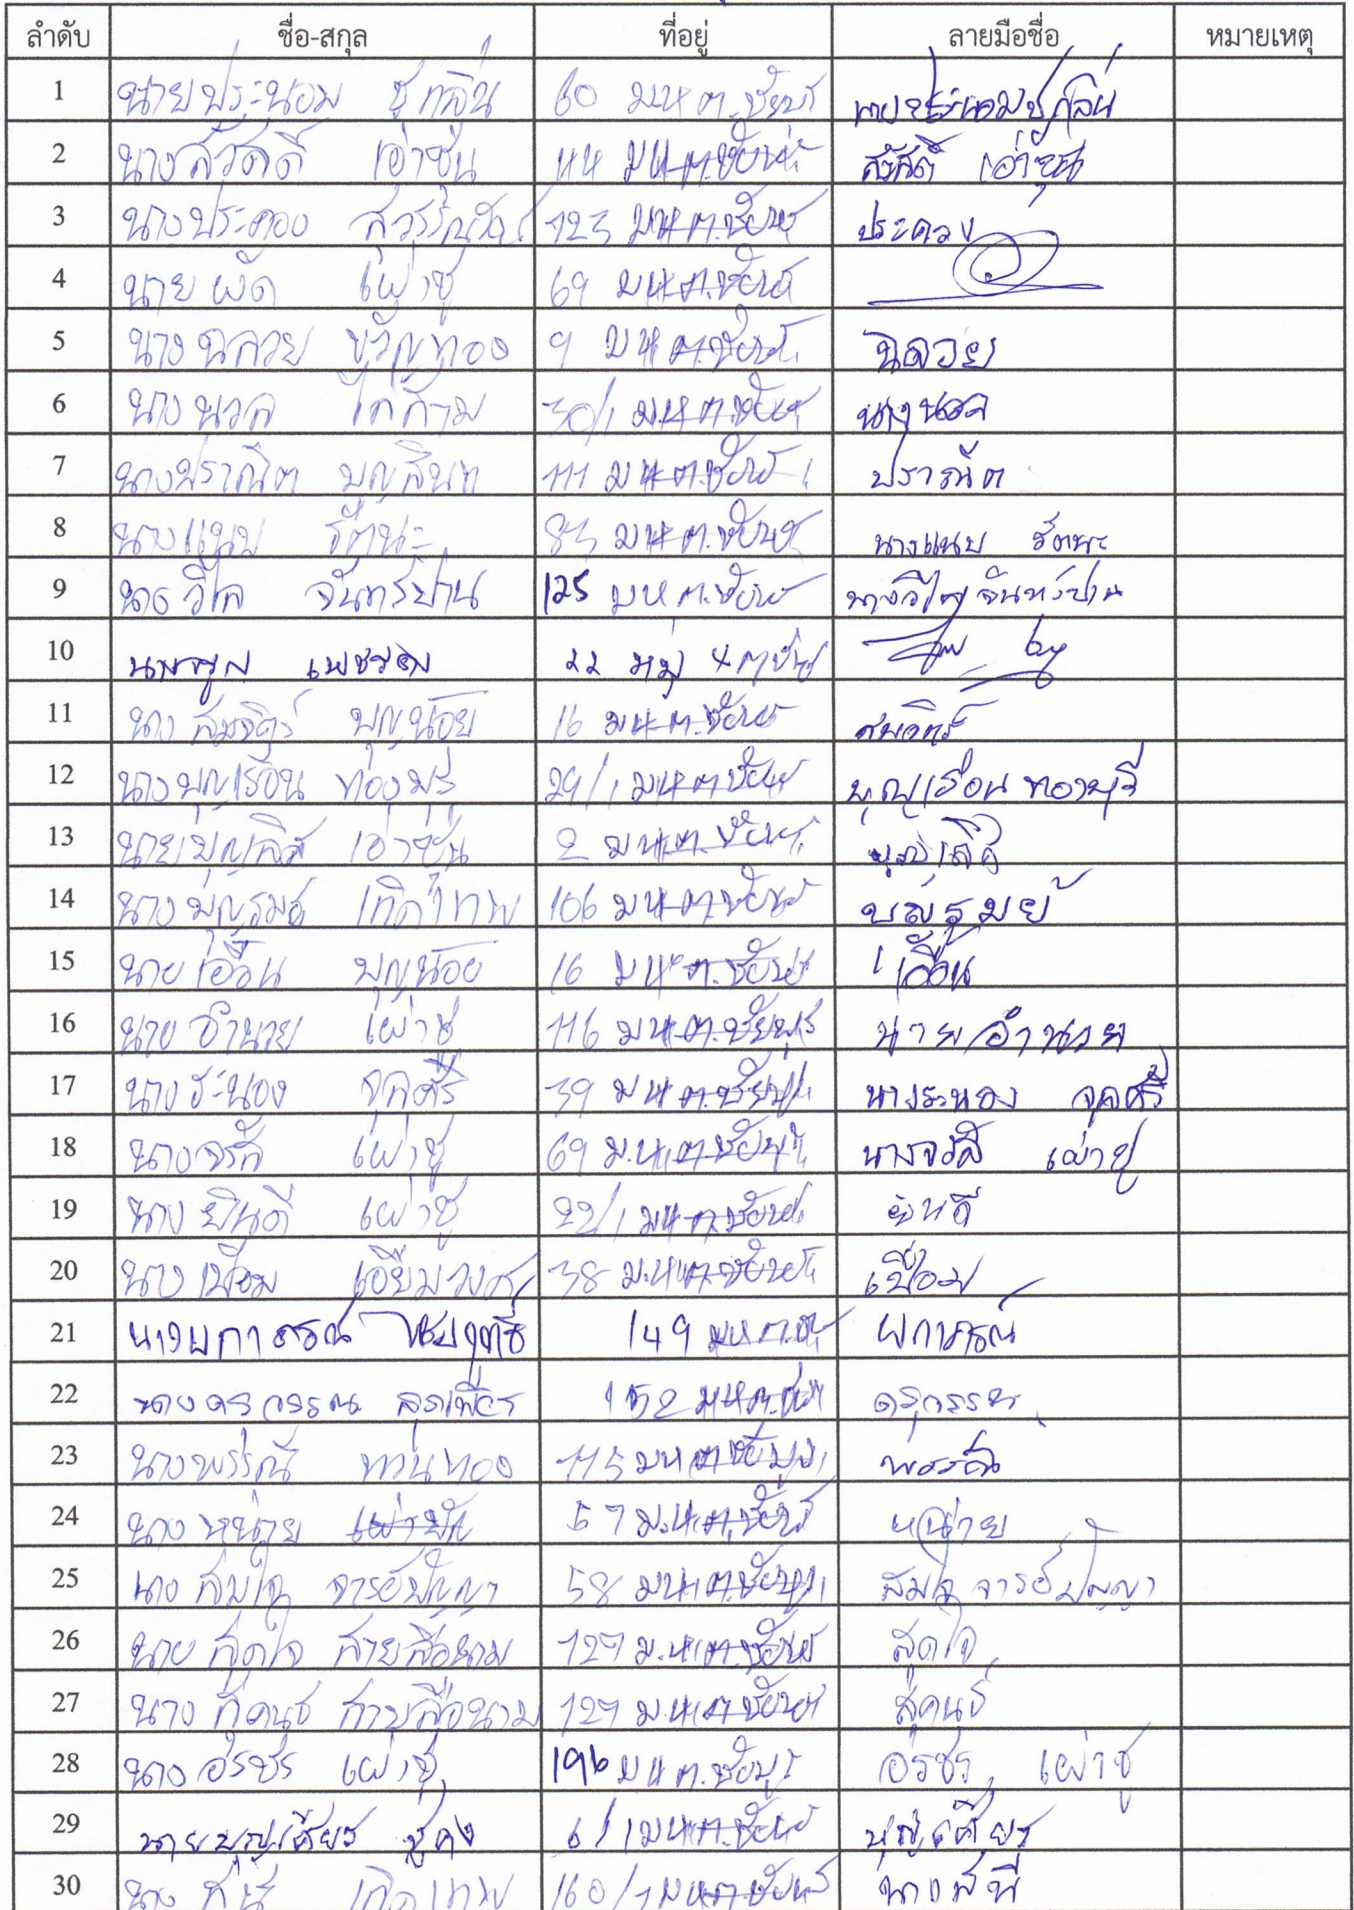 ลำดับ ชื่อ-สกุล ที่อยู่ ลายมือชื่อ หมายเหตุ
1 นายประนอม ชูกลิ่น 60 ม.4 ต.ชัยบุรี นายประนอม ชูกลิ่น
2 นางสวัสดิ์ เอ่าซุ่น 44 ม.4 ต.ชัยบุรี สวัสดิ์ เอ่าซุ่น
3 นางประคอง 123 ม.4 ต.ชัยบุรี ประคอง
4 นายผัด เผ่าชู 69 ม.4 ต.ชัยบุรี
5 นางฉลวย ขวัญทอง 9 ม.4 ต.ชัยบุรี ฉลวย
6 นางนวล ไกล้าม 30/1 ม.4 ต.ชัยบุรี นางนวล
7 นางปราณีต บุญสินท 111 ม.4 ต.ชัยบุรี ปราณีต
8 นางแนบ รัตนะ 83 ม.4 ต.ชัยบุรี นางแนบ รัตนะ
9 นางวิไล จันทร์ปาน 125 ม.4 ต.ชัยบุรี นางวิไล จันทร์ปาน
10 22 หมู่ 4 ต.ชัยบุรี
11 นางสมจิตร์ บุญน้อย 16 ม.4 ต.ชัยบุรี สมจิตร์
12 นางบุญเรือน ทองบุรี 29/1 ม.4 ต.ชัยบุรี บุญเรือน ทองบุรี
13 นายบุญเลิศ เอ่าซุ่น 2 ม.4 ต.ชัยบุรี บุญเลิศ
14 นาง เกิดเทพ 106 ม.4 ต.ชัยบุรี
15 นายเอื้อน บุญน้อย 16 ม.4 ต.ชัยบุรี เอื้อน
16 นายอำนวย เผ่าชู 116 ม.4 ต.ชัยบุรี นายอำนวย
17 นางระนอง จุลศรี 39 ม.4 ต.ชัยบุรี นางระนอง จุลศรี
18 นางจรัส เผ่าชู 69 ม.4 ต.ชัยบุรี นางจรัส เผ่าชู
19 นางยินดี เผ่าชู 22/1 ม.4 ต.ชัยบุรี ยินดี
20 นางเปื่อม เอียมวงศ์ 38 ม.4 ต.ชัยบุรี เปื่อม
21 นางผกาภรณ์ 149 ม.4 ต.ชั ผกาภรณ์
22 นางดรุวรรณ 152 ม.4 ดรุวรรณ
23 นางพรรณี ทวนทอง 115 ม.4 ต.ชัยบุรี พรรณี
24 นางหน่าย 57 ม.4 ต.ชัยบุรี หน่าย
25 นางสมใจ จารย์ปัญญา 58 ม.4 ต.ชัยบุรี สมใจ จารย์ปัญญา
26 นายสุดใจ สายสือนาม 127 ม.4 ต.ชัยบุรี สุดใจ
27 นางสุคนธ์ สายสือนาม 127 ม.4 ต.ชัยบุรี สุคนธ์
28 นางอรชร เผ่าชู 196 ม.4 ต.ชัยบุรี อรชร เผ่าชู
29 นายบุญเศียร ชูคง 6/1 ม.4 ต.ชัยบุรี บุญเศียร
30 นาง เกิดเทพ 160/1 ม.4 ต.ชัยบุรี